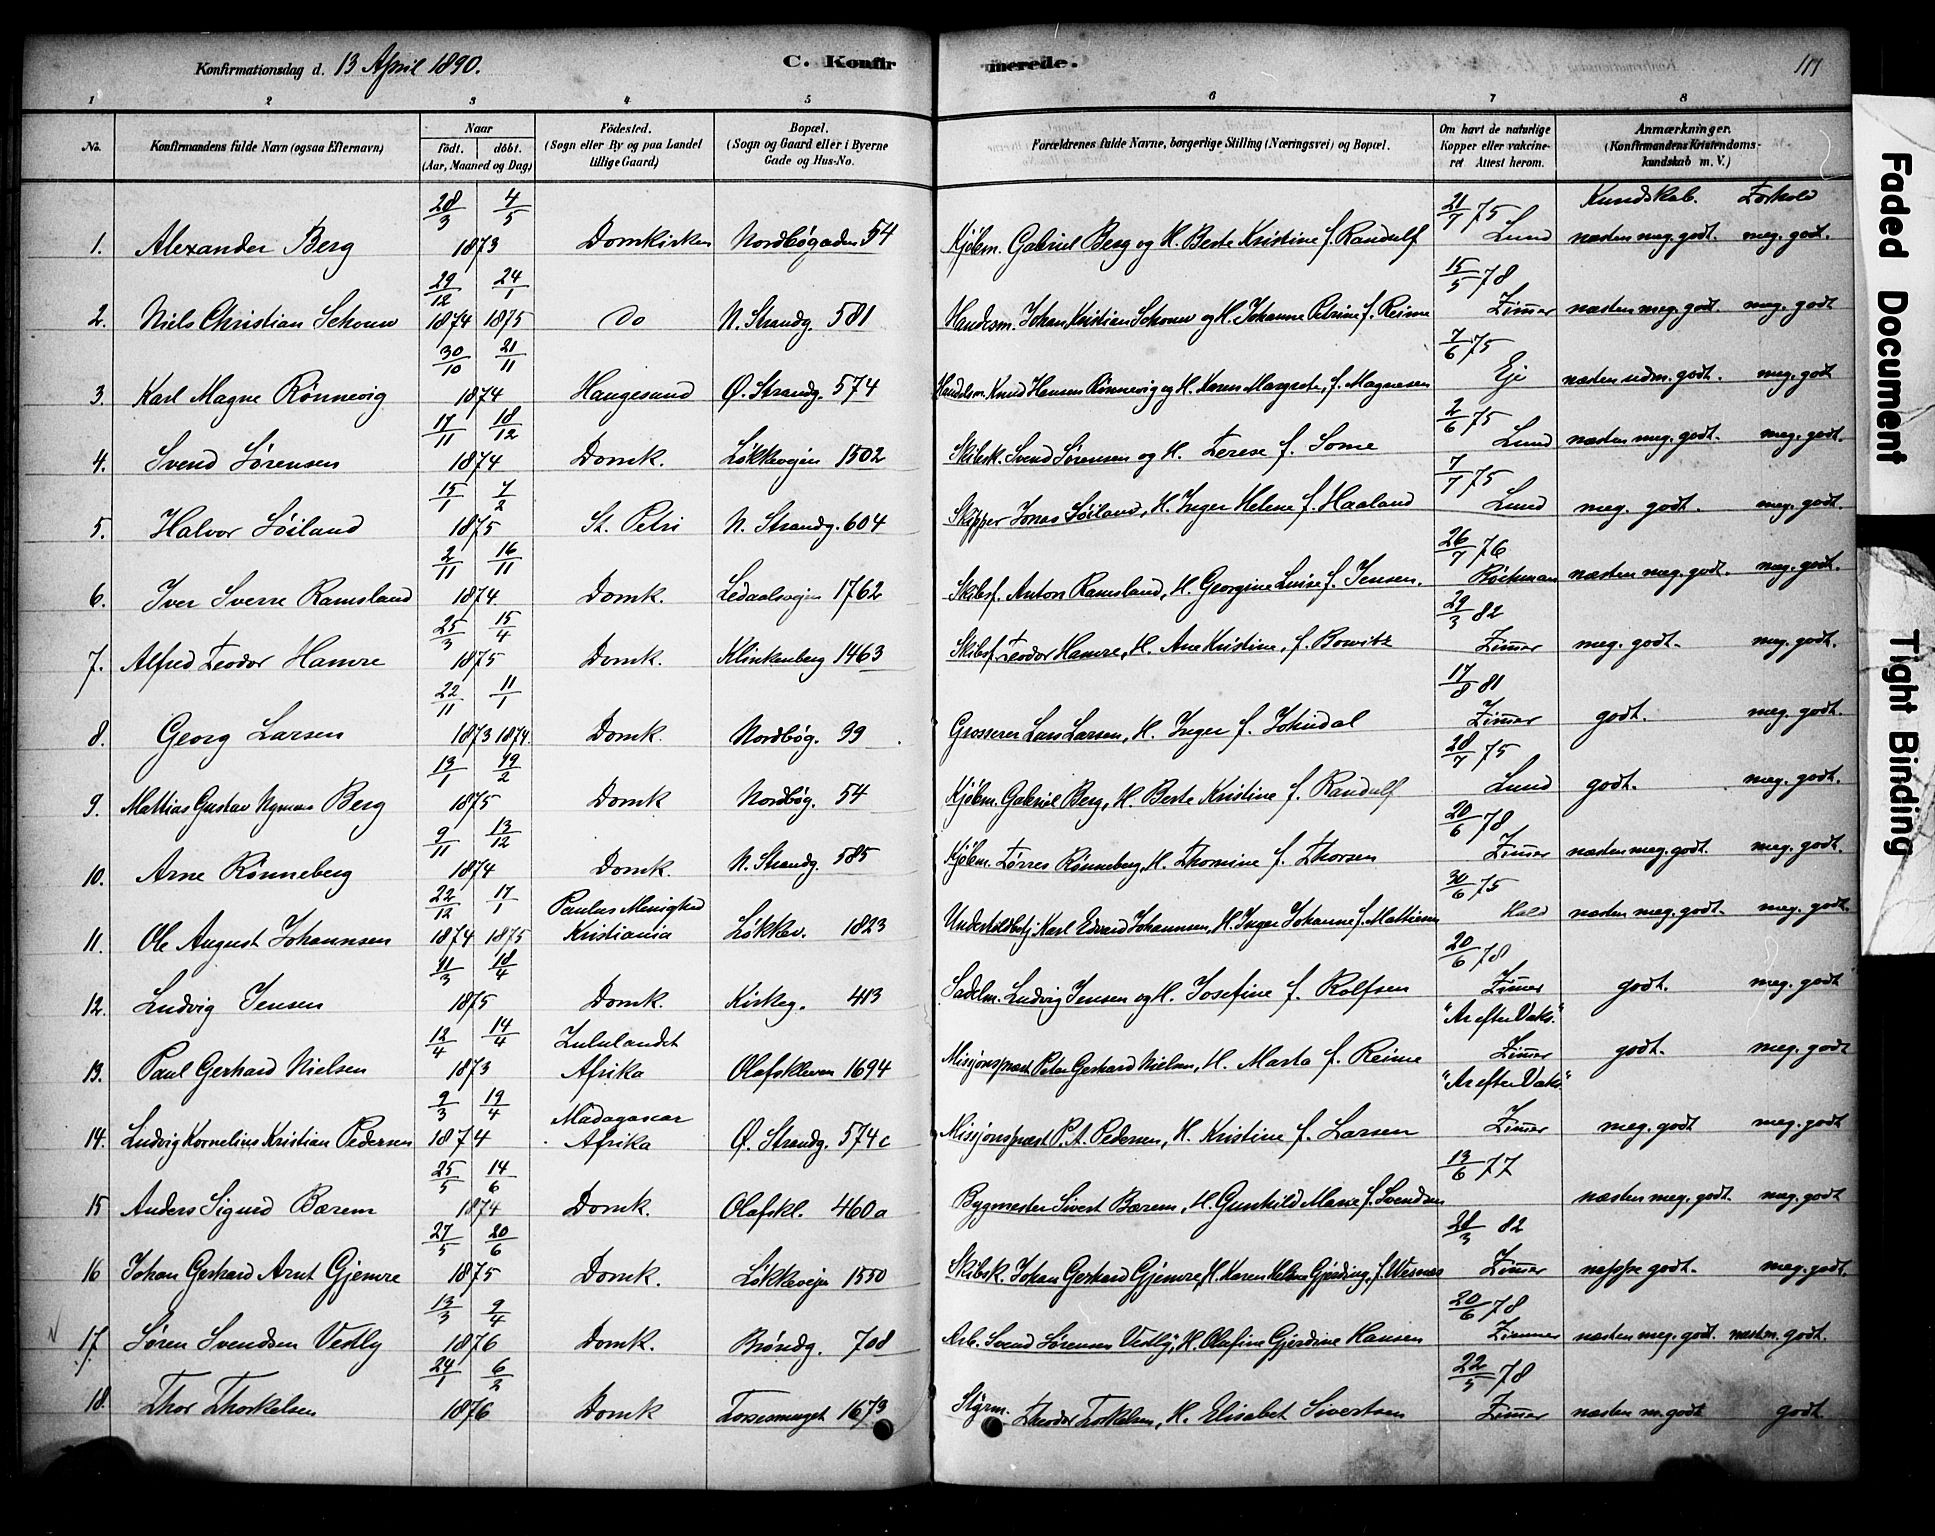 Konfirmationsdag d. 13 April 1890. C. Konfir merede. 111
1 2 3 4 5 6 7 8
No. Konfirmandens fulde Navn (ogsaa Efternavn) Naar Født. døbt. (Aar, Maaned og Dag) Fødested. (Sogn eller By og paa Landet tillige Gaard) Bopæl. (Sogn og Gaard eller i Byerne Gade og Hus-No. Forældrenes fulde Navne, borgerlige Stilling (Næringsvei) og Bopæl. Om havt de naturlige Kopper eller vakcineret Attest herom. Anmærkninger. (Konfirmandens Kristendomskundskab m. V.)
Kundskab. Forhold
28/3 4/5 21/7 75
1. Alexander Berg 1873 Domkirken Nordbøgaden 54 Kjøbm. Gabriel Berg og H. Berte Kristine f. Randulf Lund næsten meg. godt. meg. godt.
29/12 24/1 15/5 78
2. Niels Christian Schouw 1874 1875 Do N. Strandg. 581 Handesm. Johan Kristian Schouw og H. Johanne Petrine f. Reime Zimer næsten meg. godt. meg. godt
30/10 21/11 7/6 75
3. Karl Magne Rönnevig 1874 Haugesund Ø. Strandg. 574 Handelsm. Knud Hansen Rönnevig og H. Karen Margrete, f. Magnesen Eje næsten udm. godt. meg. godt
17/11 18/12 2/6 75
4. Svend Sørensen 1874 Domk. Løkkevejen 1502 Skibsk. Svend Sørensen og H. Terese f. Some Lund næsten meg. godt. meg. godt.
15/1 7/2 7/7 75
5. Halvor Söiland 1875 St. Petri N. Strandg. 604 Skipper Jonas Söiland, H. Inger Helene f. Haaland Lund meg. godt. meg. godt.
2/11 16/11 26/7 76
6. Iver Sverre Ramsland 1874. Domk. Ledaalsvejen 1762 Skibsf. Anton Ramsland, H. Georgine Luise f. Jensen. næsten meg. godt. meg. godt.
25/3 15/4 29/3 82
7. Alfred Teodor Hamre 1875 Domk. Klinkenberg 1463 Skibsf. Teodor Hamre, H. Ane Kristine, f. Bowitz Zimer meg. godt. meg. godt.
22/11 11/1 17/8 81
8. Georg Larsen 1873 1874. Domk. Nordbøg. 99 Grosserer Lars Larsen, H. Inger f. Zimer godt. meg. godt.
13/1 19/2 28/7 75
9. Mattias Gustav Berg 1875 Domk Nordbøg. 54 Kjøbm. Gabriel Berg, H. Berte Kristine f. Randulf Lund godt. meg. godt.
9/11 13/12 20/6 78
10. Arne Rönneberg 1874 Domk. N. Strandg. 585 Kjøbm. Tørres Rønneberg, H. Thomine f. Thorsen Zimer næsten meg. godt. meg. godt.
22/12 17/1 Paulus Menighed 30/6 75
11. Ole August Johannsen 1874 1875 Kristiania Løkkev. 1823 Karl Edvard Johannsen, H. Inger Johanne f. Mathiesen Hald næsten meg. godt. meg. godt.
11/3 18/4 20/6 78
12. Ludvig Jensen 1875 Domk. Kirkeg. 413 Sadelm. Ludvig Jensen og H. Josefine f. Rolfsen Zimer godt. meg. godt
12/4 14/4 Zululandet "Ar efter Vaks."
13. Paul Gerhard Nielsen 1873 Afrika Olafskleven 1694 Missjonspræst Peter Gerhard Nielsen, H. Marta f. Reime Zimer godt. meg. godt
9/3 19/4 Madagascar "Ar efter Vaks"
14. Ludvig Kornelius Kristian Pedersen 1874 Afrika Ø. Strandg. 574 c Missjonspræst P. A. Pedersen, H. Kristine f. Larsen Zimer meg. godt meg. godt
25/5 14/6 13/6 77
15 Anders Sigurd Bærem 1874 Domk. Olafskl. 460 a Bygmester Sivert Bærem, H. Gunhild Marie f. Svendsen næsten meg. godt. meg. godt
27/5 20/6 28/3 82
16 Johan Gerhard Arnt Gjemre 1875 Domk. Løkkevejen 1550 Skibsk. Johan Gerhard Gjemre, H. Karen Helene Gjerding, f. Wisnes Zimer neppe godt. meg. godt.
13/3 9/4 20/6 78
17. Søren Svendsen Vedly 1876 Domk. Brøndg. 708 Arb. Svend Sørensen Vedly, H. Olafine Gjerdine Hansen Zimmer næsten meg. godt. næsten. godt.
24/1 6/2 22/5 78
18. Thor Thorkelsen 1876 Domk 1673 Styrm. Theodor Torkelsen, H. Elisabet Sivertsen Zimer næsten m. godt godt.
Faded Document
Tight Binding